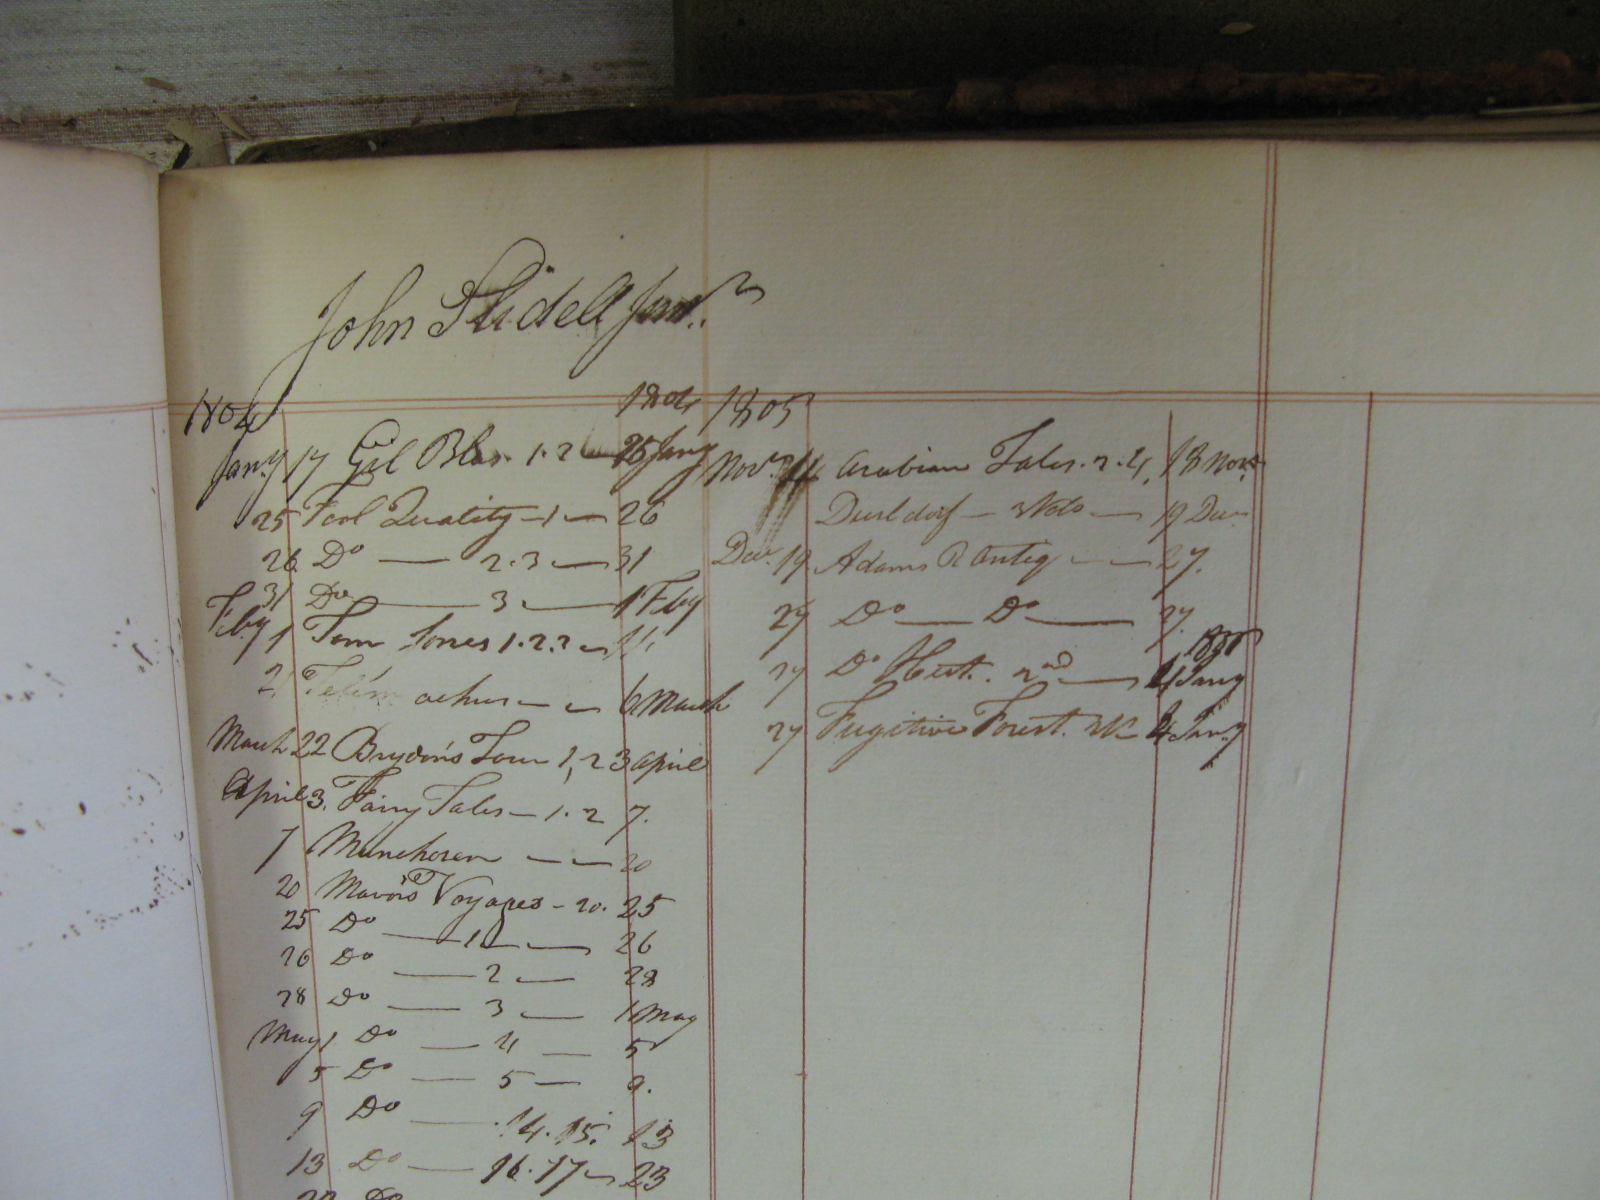 John Slidell Junr.
1804 1804
Jany 17 Gil Blas. 1.2 25 Jany
25 Fool Quality - 1 — 26
26 Do — 2.3 — 31
31 Do — 3 — 1 Feby
Feby 1 Tom Jones 1.2.3 — 11.
Telemachus — 6 March
March 22 Brydon's Tour 1, 2 3 April
April 3. Fairy Tales — 1.2 7.
7 Munchosen — — 20
20 Mavor's Voyages - 20. 25
25 Do — 1 — 26
26 Do — 2 — 28
28 Do — 3 — 1 May
May 1 Do — 4 — 5
5 Do — 5 — 9.
9 Do — 14.15. 13
13 Do — 16.17 — 23
Do
1805
Novr 14 Arabian Tales. 2.4, 18 Novr
Dusldorf — 19 Decr
Decr. 19 Adams R Antiq — — 27.
27 Do — Do — 27.
27 Do Hist. 2nd — 4 Jany
27 Fugitive Forest. 4 Jany